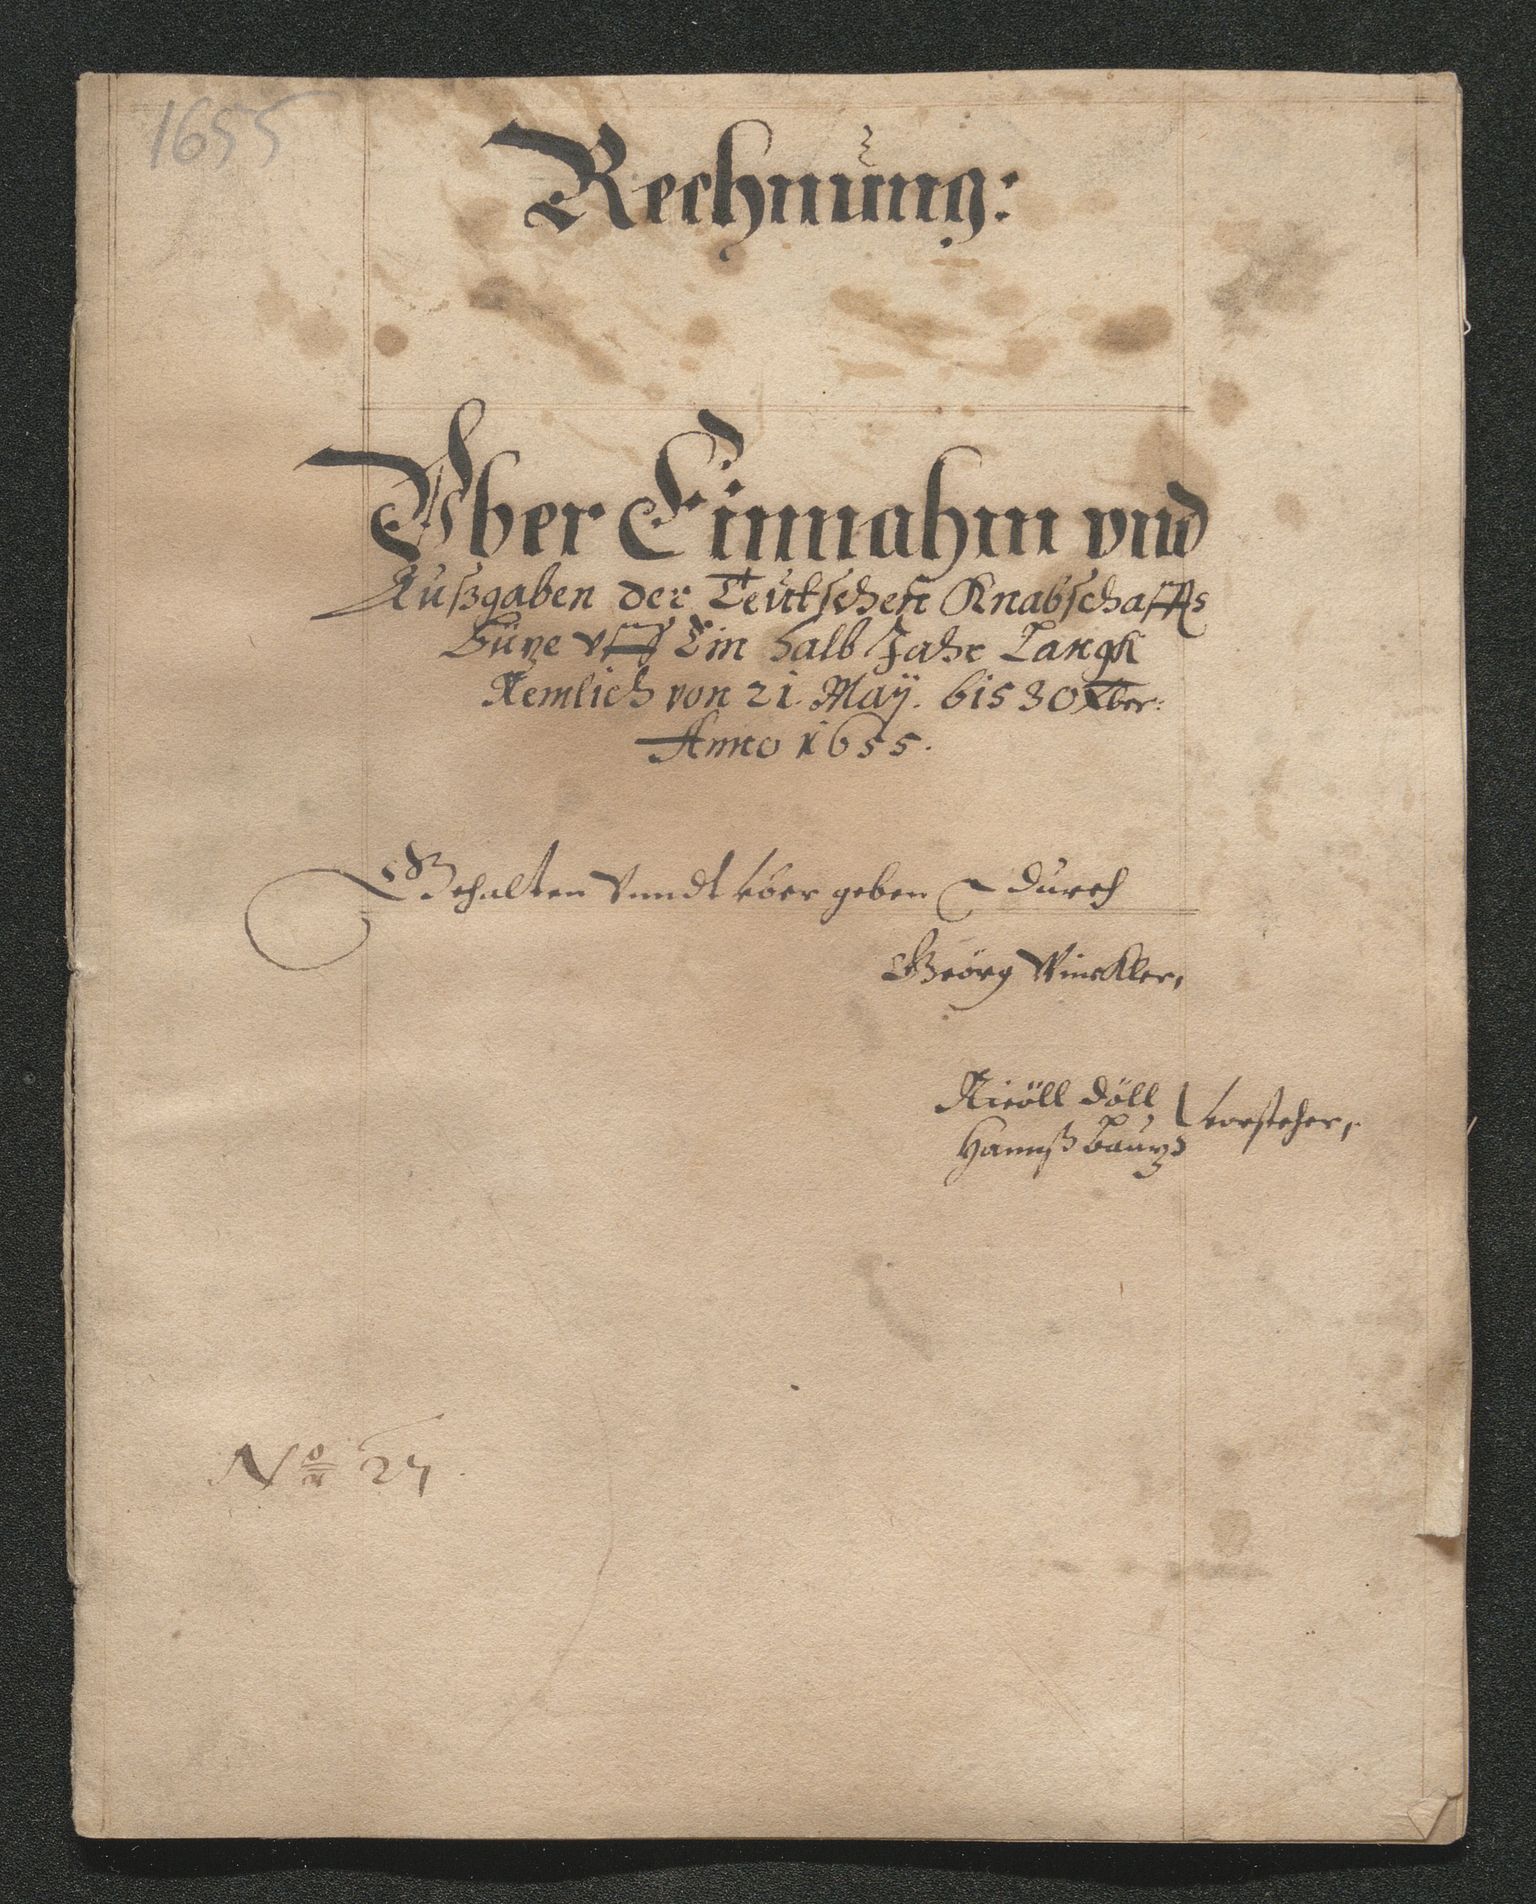 1655
Rechnŭng:
Vber Einnahm vnd
Außgaben der Teutschen Knabschaffts
Büxe vff Ein halb Jahr Langk
Nemlich von 21. Maÿ. bis 30 Xber:
Anno 1655.
Gehalten Vnndt vber geben durch
Geörg Winckler,
Nicöll Döll
Vorsteher,
Hannß
No 27